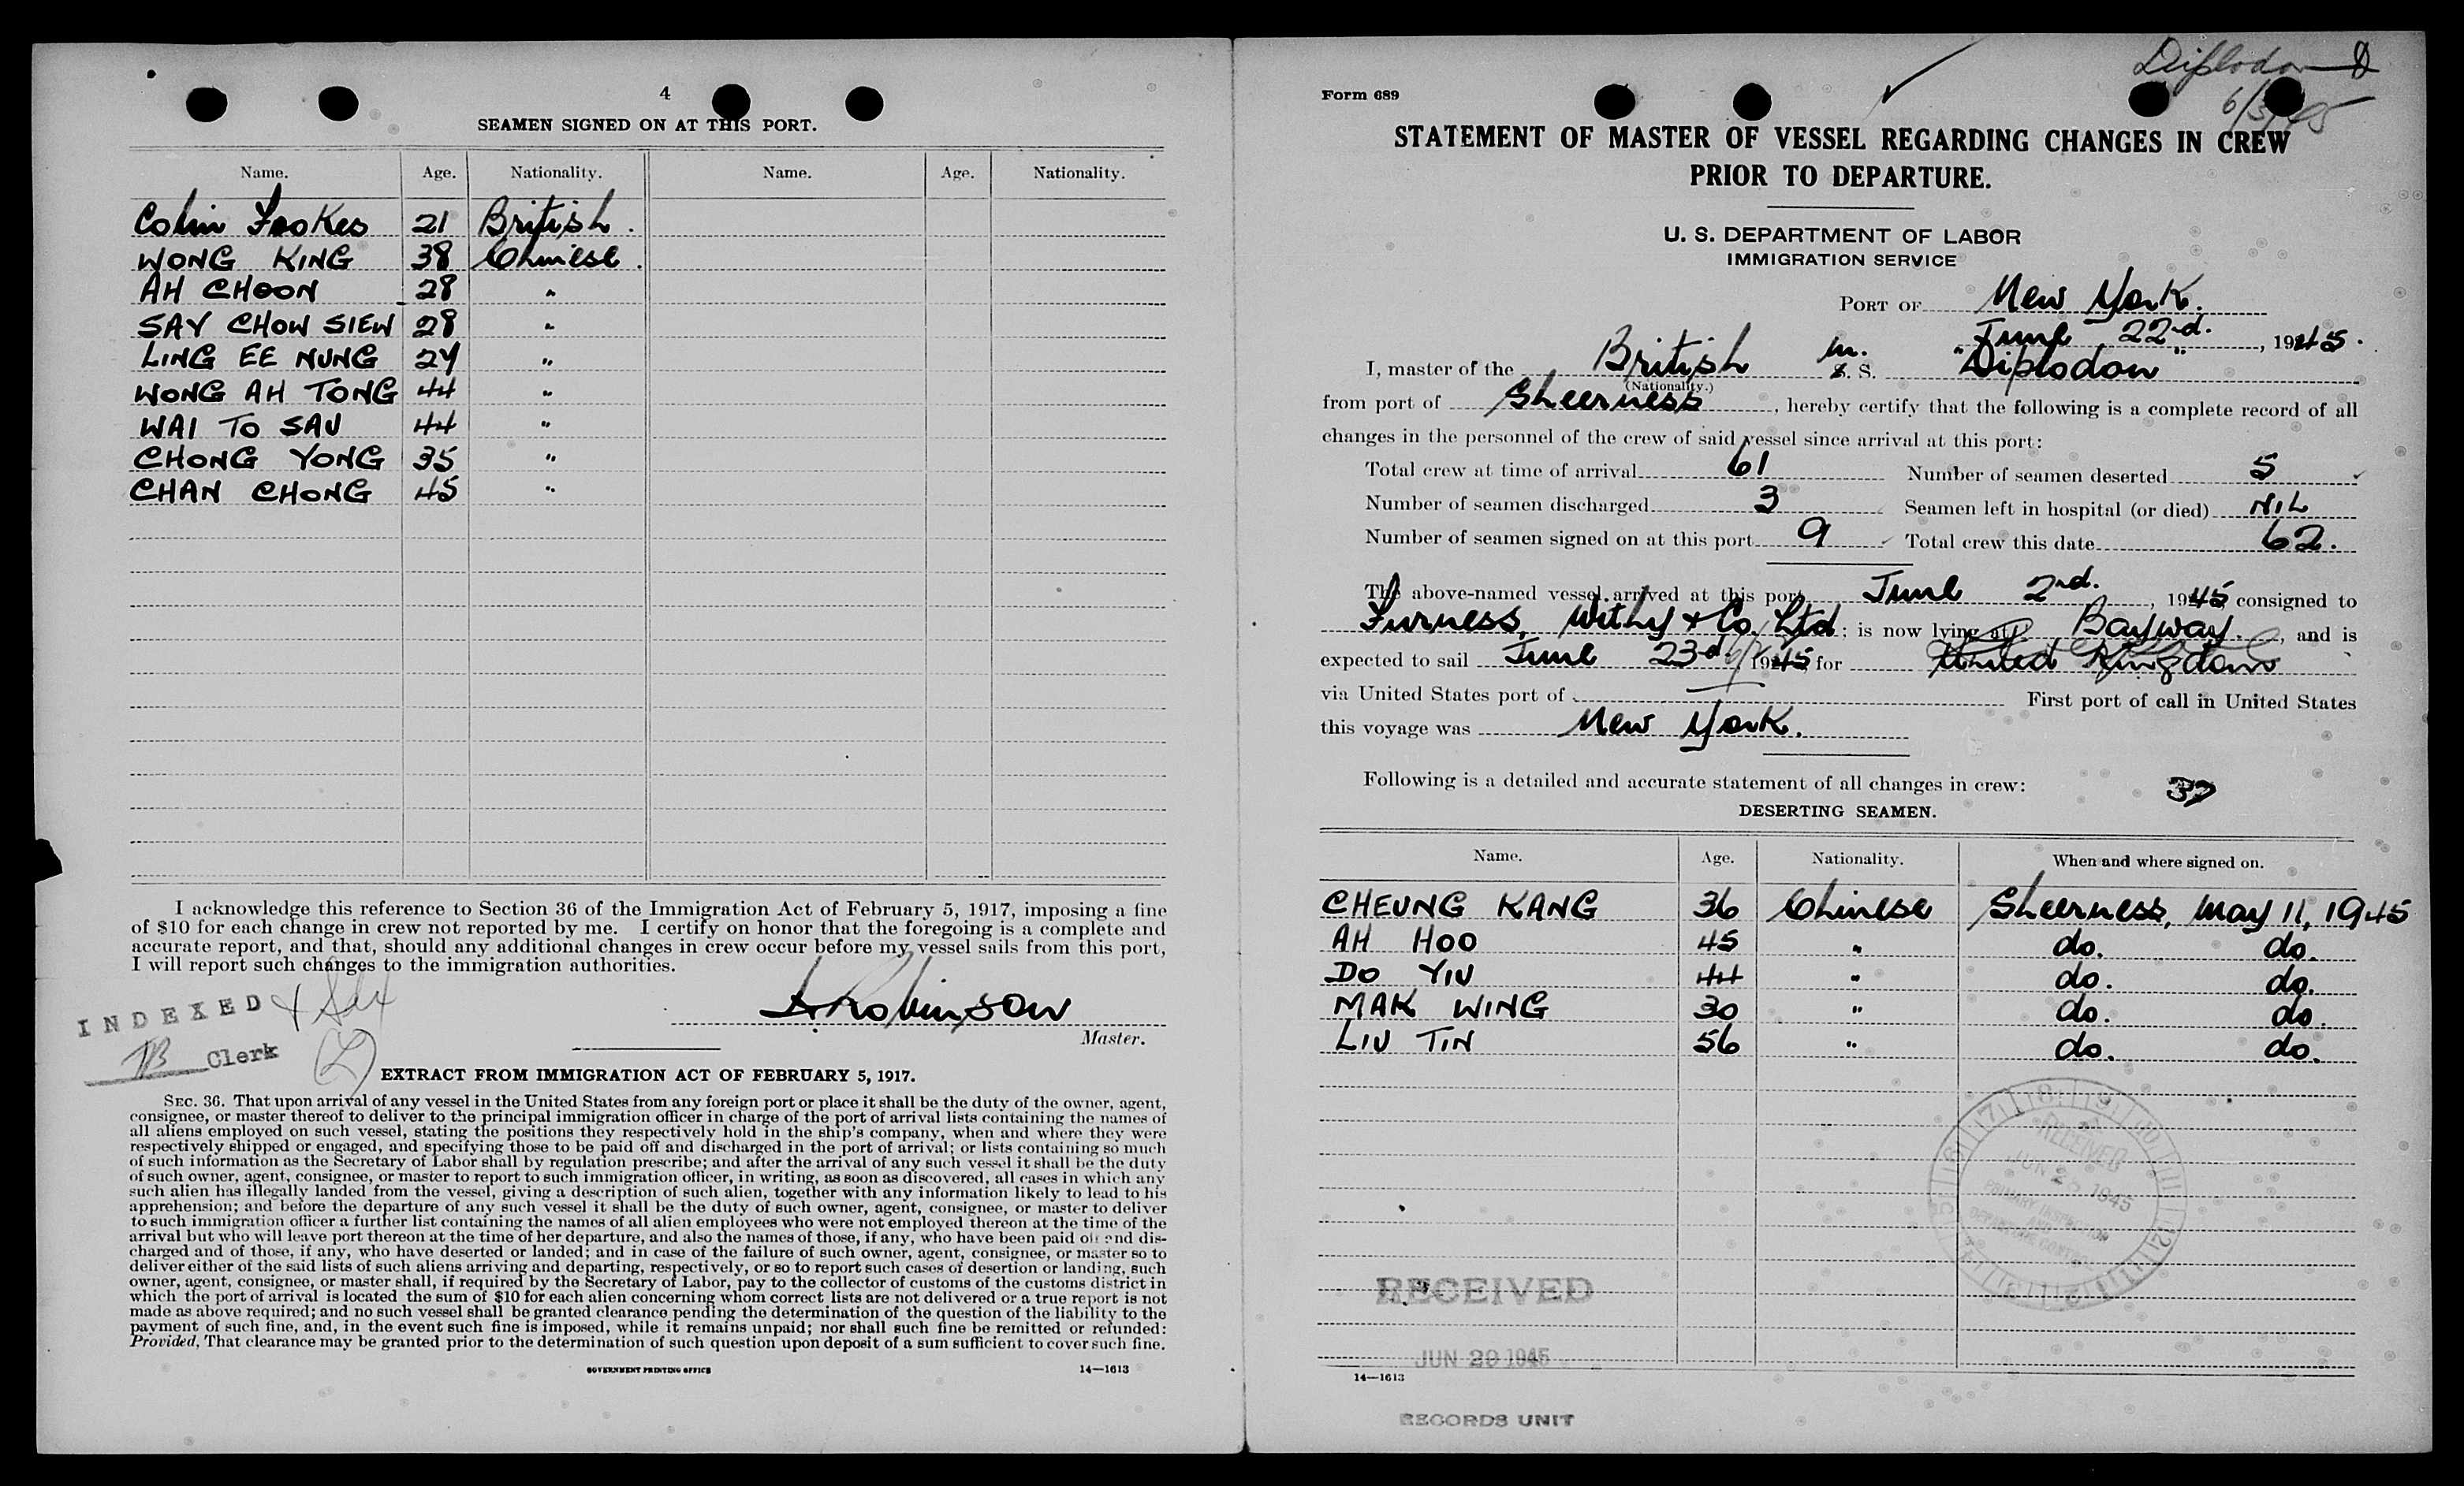 4
SEAMEN SIGNED ON AT THIS PORT.
Name. Age. Nationality. Name. Age. Nationality.
Colin Fookes 21 British.
WONG KING 38 Chinese.
AH CHOON 28 "
SAY CHOW SIEW 28 "
LING EE NUNG 24 "
WONG AH TONG 44 "
WAI TO SAU 44 "
CHONG YONG 35 "
CHAN CHONG 45 "
I acknowledge this reference to Section 36 of the Immigration Act of February 5, 1917, imposing a fine
of $10 for each change in crew not reported by me. I certify on honor that the foregoing is a complete and
accurate report, and that, should any additional changes in crew occur before my vessel sails from this port,
I will report such changes to the immigration authorities.
INDEXED
Robinson
Master.
JB Clerk
EXTRACT FROM IMMIGRATION ACT OF FEBRUARY 5, 1917.
SEC. 36. That upon arrival of any vessel in the United States from any foreign port or place it shall be the duty of the owner, agent,
consignee, or master thereof to deliver to the principal immigration officer in charge of the port of arrival lists containing the names of
all aliens employed on such vessel, stating the positions they respectively hold in the ship's company, when and where they were
respectively shipped or engaged, and specifying those to be paid off and discharged in the port of arrival; or lists containing so much
of such information as the Secretary of Labor shall by regulation prescribe; and after the arrival of any such vessel it shall be the duty
of such owner, agent, consignee, or master to report to such immigration officer, in writing, as soon as discovered, all cases in which any
such alien has illegally landed from the vessel, giving a description of such alien, together with any information likely to lead to his
apprehension; and before the departure of any such vessel it shall be the duty of such owner, agent, consignee, or master to deliver
to such immigration officer a further list containing the names of all alien employees who were not employed thereon at the time of the
arrival but who will leave port thereon at the time of her departure, and also the names of those, if any, who have been paid off and dis-
charged and of those, if any, who have deserted or landed; and in case of the failure of such owner, agent, consignee, or master so to
deliver either of the said lists of such aliens arriving and departing, respectively, or so to report such cases of desertion or landing, such
owner, agent, consignee, or master shall, if required by the Secretary of Labor, pay to the collector of customs of the customs district in
which the port of arrival is located the sum of $10 for each alien concerning whom correct lists are not delivered or a true report is not
made as above required; and no such vessel shall be granted clearance pending the determination of the question of the liability to the
payment of such fine, and, in the event such fine is imposed, while it remains unpaid; nor shall such fine be remitted or refunded:
Provided, That clearance may be granted prior to the determination of such question upon deposit of a sum sufficient to cover such fine.
GOVERNMENT PRINTING OFFICE 14—1613
Diplodon
Form 689
STATEMENT OF MASTER OF VESSEL REGARDING CHANGES IN CREW
PRIOR TO DEPARTURE.
U. S. DEPARTMENT OF LABOR
IMMIGRATION SERVICE
PORT OF New York.
June 22nd., 1945.
I, master of the British m. S. "Diplodon"
(Nationality.)
from port of Sheerness, hereby certify that the following is a complete record of all
changes in the personnel of the crew of said vessel since arrival at this port:
Total crew at time of arrival 61 Number of seamen deserted 5
Number of seamen discharged 3 Seamen left in hospital (or died) NIL
Number of seamen signed on at this port 9 Total crew this date 62.
The above-named vessel arrived at this port June 2nd., 1945, consigned to
Furness, Withy & Co. Ltd; is now lying at Bayway., and is
expected to sail June 23d 1945, for United Kingdom
via United States port of — First port of call in United States
this voyage was New York.
Following is a detailed and accurate statement of all changes in crew: 37
DESERTING SEAMEN.
Name. Age. Nationality. When and where signed on.
CHEUNG KANG 36 Chinese Sheerness, May 11, 1945
AH HOO 45 " do. do.
DO YIU 44 " do. do.
MAK WING 30 " do. do.
LIU TIN 56 " do. do.
RECEIVED
JUN 2 1945
PRIMARY INSPECTION
AND
DEPARTURE CONTROL
RECEIVED
JUN 29 1945
14—1613
RECORDS UNIT